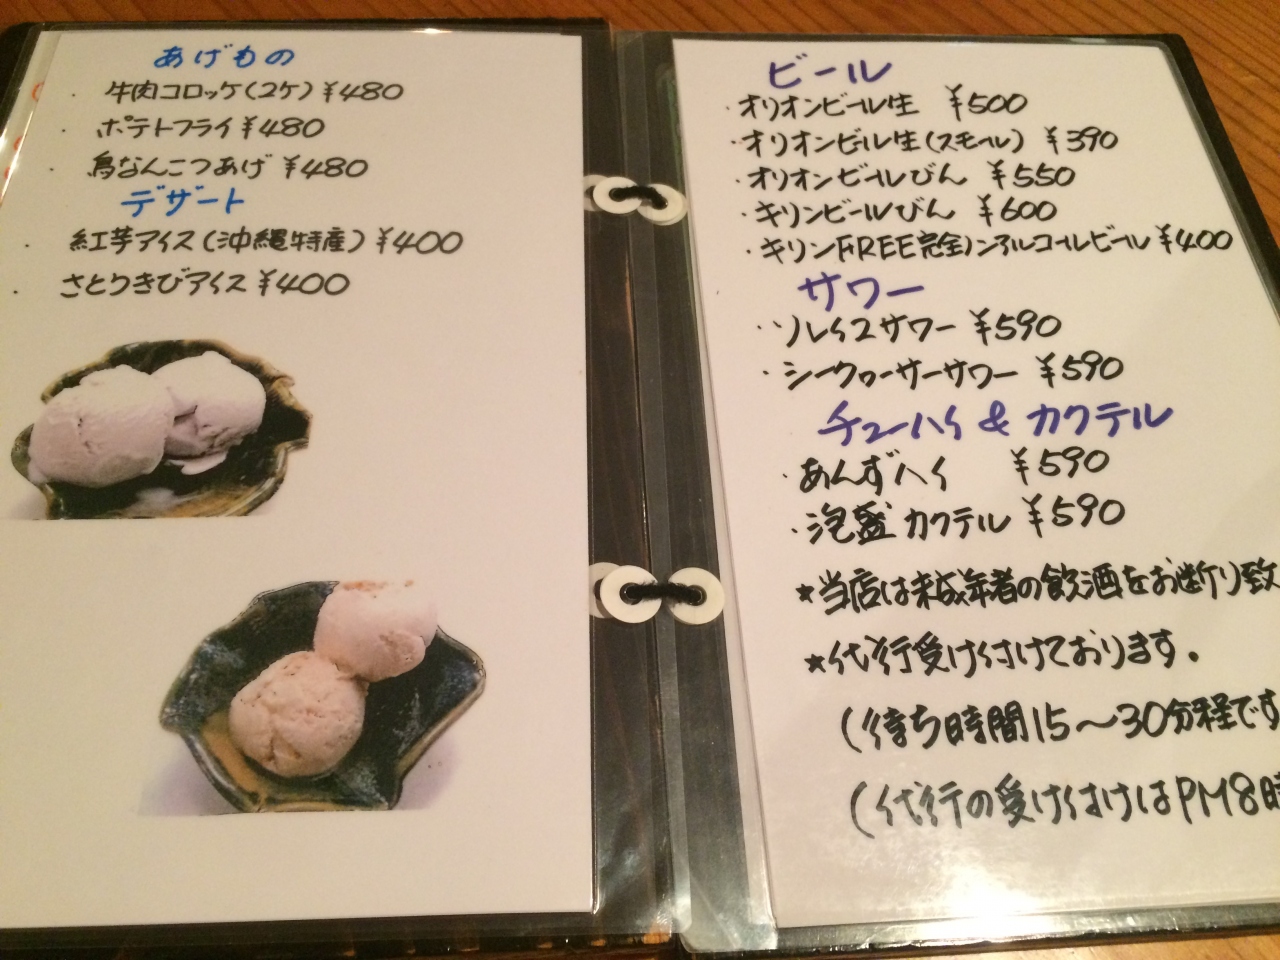 あげもの
・牛肉コロッケ(2ケ)¥480
・ポテトフライ¥480
・鳥なんこつあげ ¥480
デザート
・紅芋アイス(沖縄特産)¥400
・さとうきびアイス¥400
ビール
・オリオンビール生 ¥500
・オリオンビール生(スモール) ¥390
・オリオンビールびん ¥550
・キリンビールびん ¥600
・キリンFREE完全ノンアルコールビール ¥400
サワー
・ソレイユサワー ¥590
・シークヮーサーサワー ¥590
チューハイ & カクテル
・あんずハイ ¥590
・泡盛カクテル ¥590
★当店は未成年者の飲酒をお断り致
★代行受け付けております。
(待ち時間15〜30分程です
(代行の受け付けはPM8時